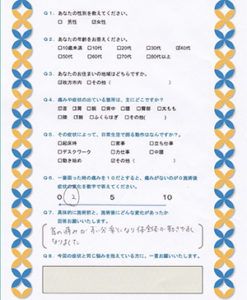 Q1. あなたの性別を教えてください。
□男性 ☑女性
Q2. あなたの年齢をお答えください。
□10歳未満 □10代 □20代 □30代 ☑40代
□50代 □60代 □70代 □80代以上
Q3. あなたのお住まいの地域はどちらですか。
☑枚方市内 □その他( )
Q4. 痛みや症状の出ている箇所は、主にどこですか?
□ふくらはぎ □その他( )
Q5. その症状によって、日常生活で困る動作はなんですか?
□起床時 □家事 □立ち仕事
□デスクワーク □力仕事 □中腰
□動き始め ☑その他( )
Q6. 一番困った時の痛みを10だとすると、痛みがないのが0 施術後
症状の変化を数字で教えてください。
0 2 5 10
Q7. 具体的に施術前と、施術後にどんな変化があったか
回答お願いいたします。
なりました。
Q8. 今回の症状と同じ悩みを抱えている方に、一言お願いいたします。